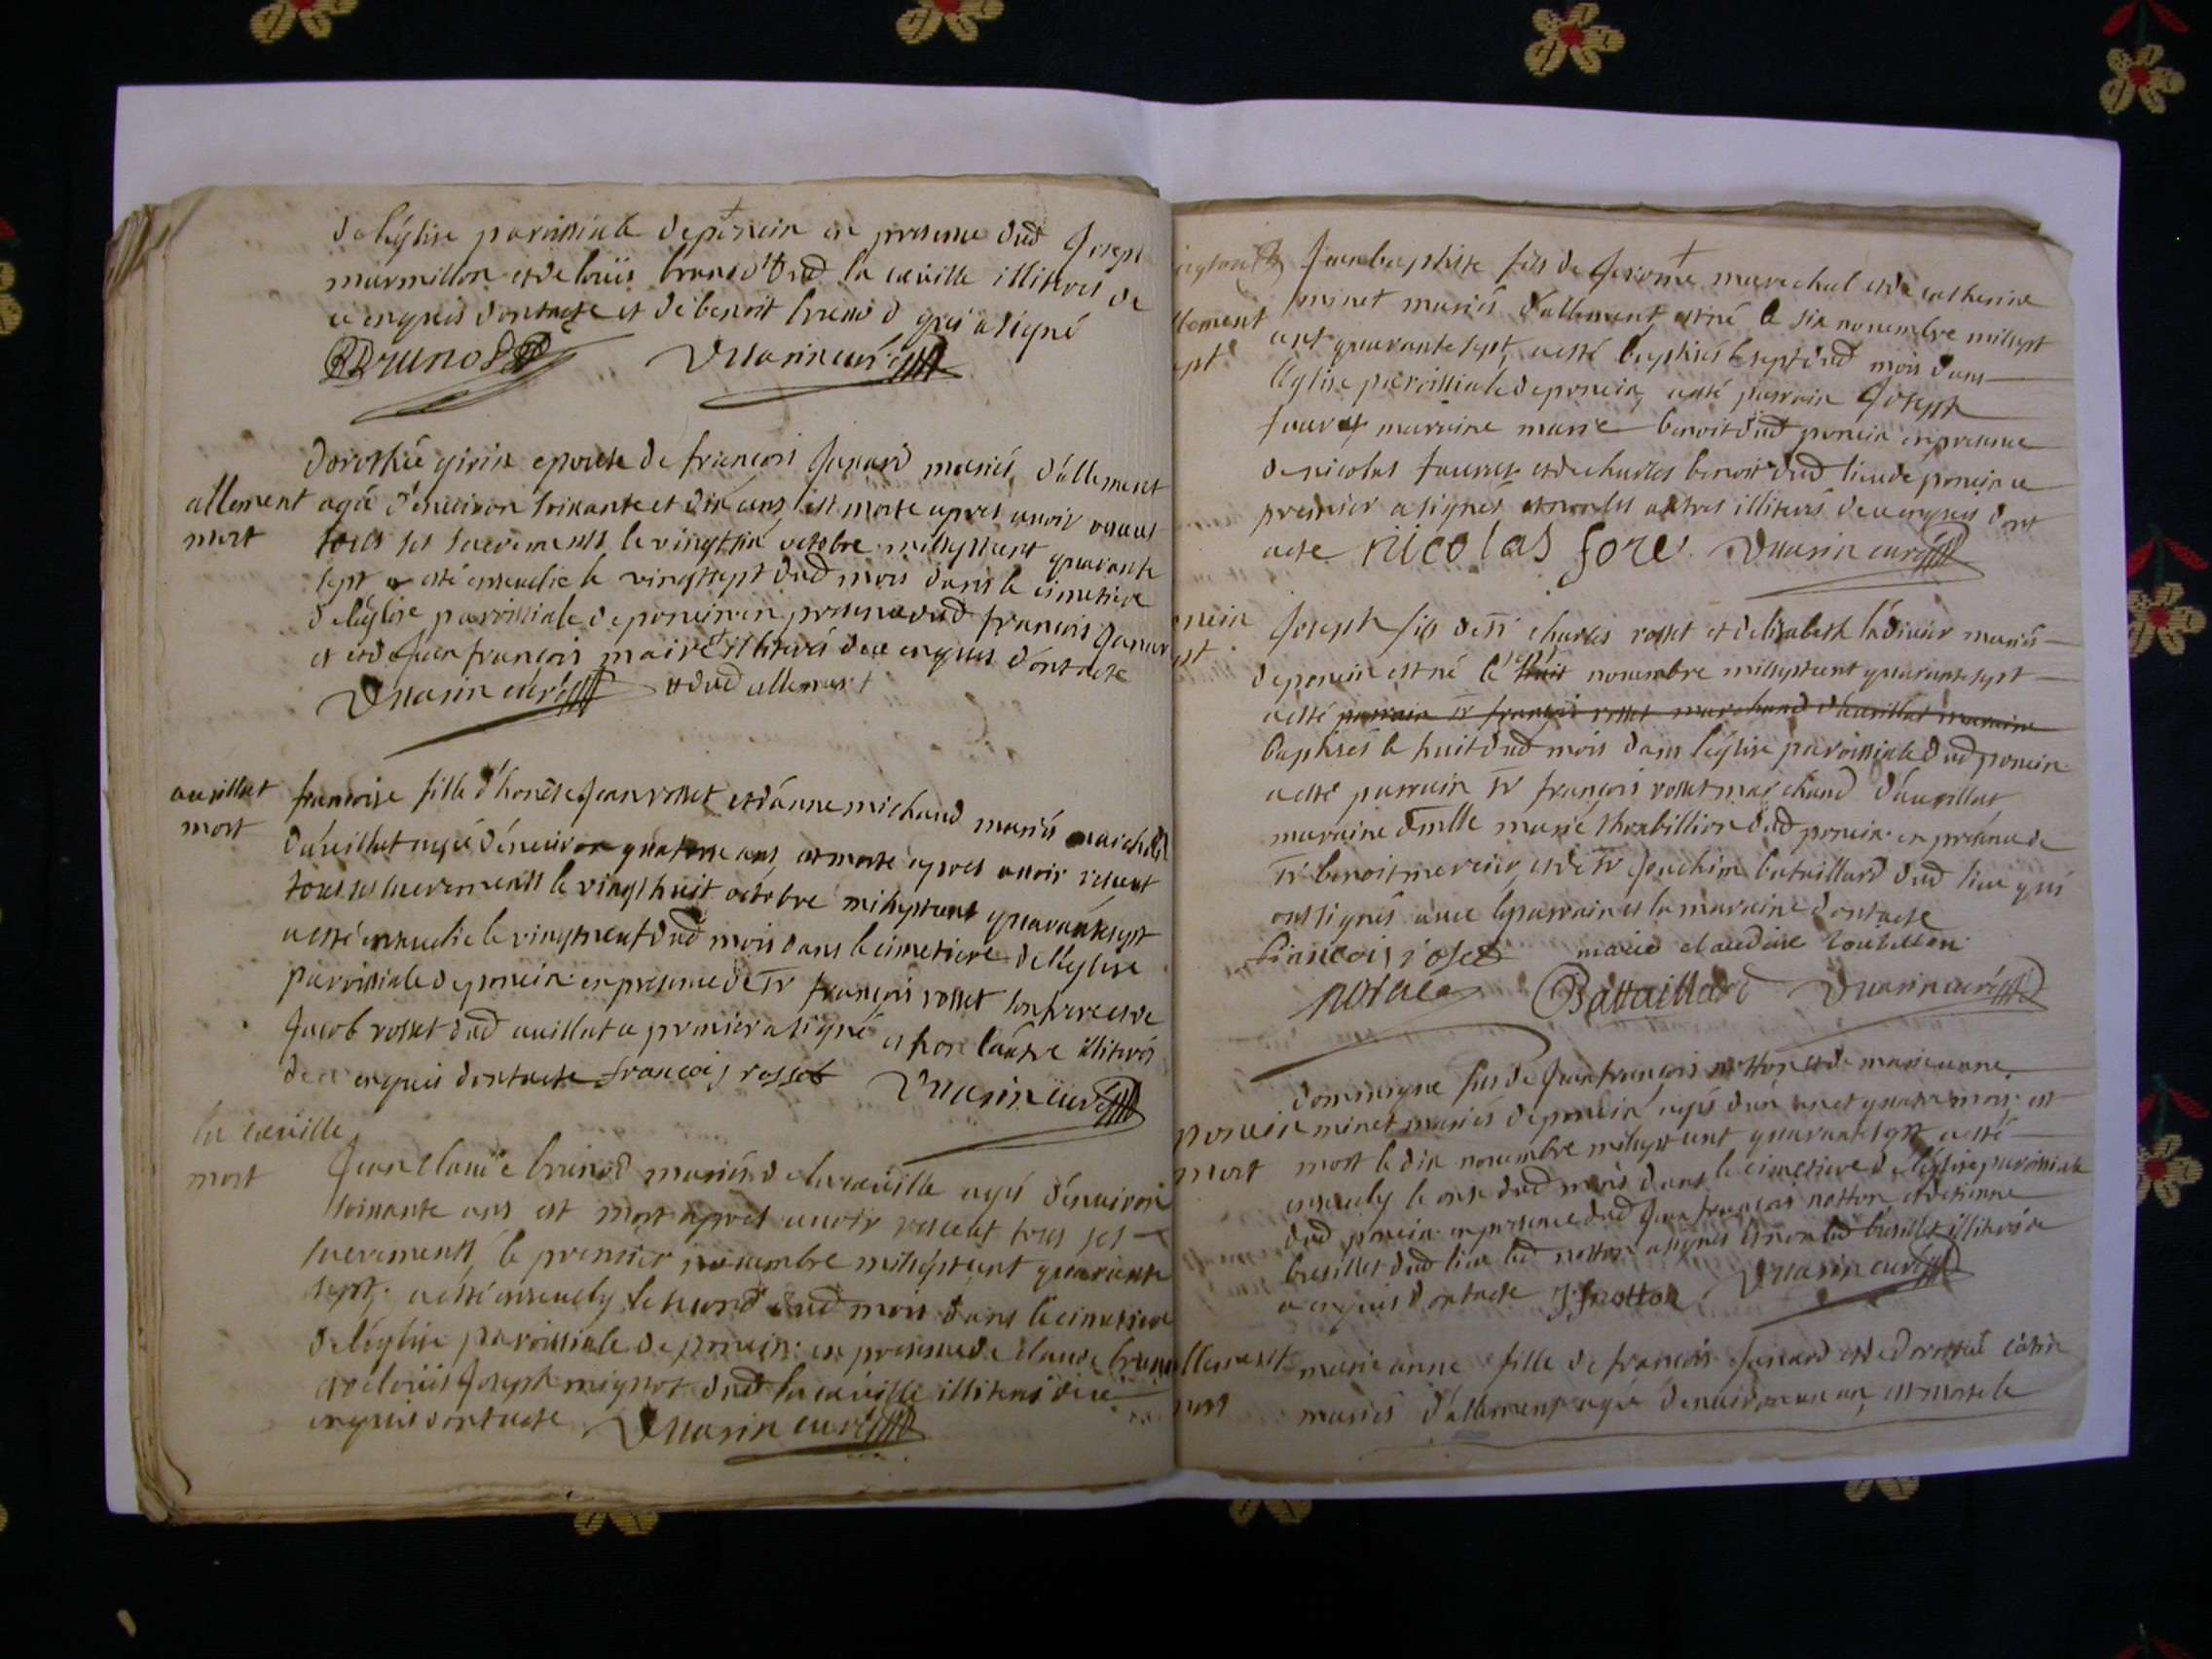 de léglise parroissiale de poncin en presence dud Joseph
murmillon et de loüis brunod dud la cüeille illiterés de
ce enquis dont acte et de benoit brunod qui a signé
BRunod Duarin curé
dorothée girin epouse de francois Janard mariés d'allement
allement agée d'environ soixante et dix ans est morte apres avoir receut
mort tous ses sacrements le vingt six octobre mil sept cent quarante
sept a esté ensevelie le vingt sept dud mois dans le cimetiere
de léglise parroissiale de poncin en presence dud francois Janard
et de Jean francois maire illiterés de ce enquis dont acte
Duarin curé et dud allement
avillat francoise fille d'honéte Jean rosset et d'anne michaud mariés marchds
mort d'avillat agée d'environ quatorse ans, est morte apres avoir receut
tous ses sacrements le vingt huit octobre mil sept cent quarante sept
a esté ensevelie le vingt neuf dud mois dans le cimetiere de léglise
parroissiale de poncin en presence de sr francois rosset son frere et de
Jacob rosset dud avillat ce premier a signé et non lautre illiteré
de ce enquis dont acte francois rosset Duarin curé
la cueille
mort Jean claude brunod mariés de la cueille agé d'environ
soixante ans est mort apres avoir receut tous ses
sacrements, le premier novembre mil sept cent quarante
sept. a esté ensevely le second dud mois dans le cimetiere
de léglise parroissiale de poncin en presence de claude brunod
et de loüis Joseph mignot dud la cueille illiterés de ce
enquis dont acte Duarin curé
Jean baptiste fils de Jerome marechal et de catherine
minet mariés d'allement, est né le six novembre mil sept
lement cent quarante sept, a esté baptisés le sept dud mois dans
pt léglise parroissiale de poncin, a esté parrain Joseph
faure et maraine marie benoit dud poncin en presence
de nicolas faure et de charles benoit dud lieu de poncin ce
premier a signés et non les autres illiterés de ce enquis dont
acte nicolas fore Duarin curé
ncin Joseph fils de sr charles rosset et delisabeth ladivier mariés
pt de poncin est né le huit novembre mil sept cent quarante sept
a esté parrain sr françois rosset marchand d'avillat maraine
baptisés le huit dud mois dans léglise parroissiale dud poncin
a esté parrain sr françois rosset marchand d'avillat
maraine dmlle marie thorbillion dud poncin en présence de
sr benoit mercier, et de sr Joachim bataillard dud lieu qui
ont signés avec le parrain et la maraine dont acte
francois roset marie claudine
Battaillard Duarin curé
dominique fils de Jean francois notton et de marie anne
poncin minet mariés de poncin agés d'un an et quatre mois, est
mort mort le dix novembre mil sept cent quarante sept a esté
ensevely le onse dud mois dans le cimetiere de léglise parroissiale
dud poncin en presence dud Jean francois notton et detienne
bresillet dud lieu led notton a signés et non led bresillet illiteré de
ce enquis dont acte J f notton Duarin curé
llement marie anne fille de francois Janard et de dorothée
mort mariés d'allement, agée denviron un an, est morte le